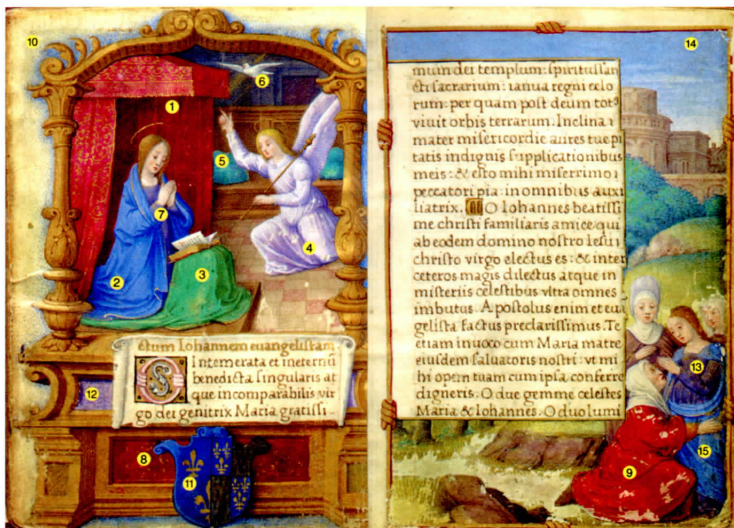 10
6
1
5
7
4
3
2
ctum Iohannem euangelistam
Intemerata et ineternū
benedicta singularis at
que incomparabilis vir
go dei genitrix Maria gratissi
12
8
11
14
mum dei templum: spiritussan
cti sacrarium: ianua regni celo
rum: per quam post deum tot
viuit orbis terrarum. Inclina
mater misericordie aures tue pi
tatis indignis supplicationibus
meis: & esto mihi miserrimo
peccatori pia: in omnibus auxi
liatrix. O Iohannes beatissi
me christi familiaris amice: qui
ab eodem domino nostro Iesu
christo virgo electus es: & inter
ceteros magis dilectus atque in
misteriis celestibus vltra omnes
imbutus. Apostolus enim et eua
gelista factus preclarissimus. Te
etiam inuoco cum Maria matre
eiusdem saluatoris nostri: vt mi
hi opem tuam cum ipsa conferre
digneris. O due gemme celestes
Maria & Iohannes. O duo lumi
13
9
15